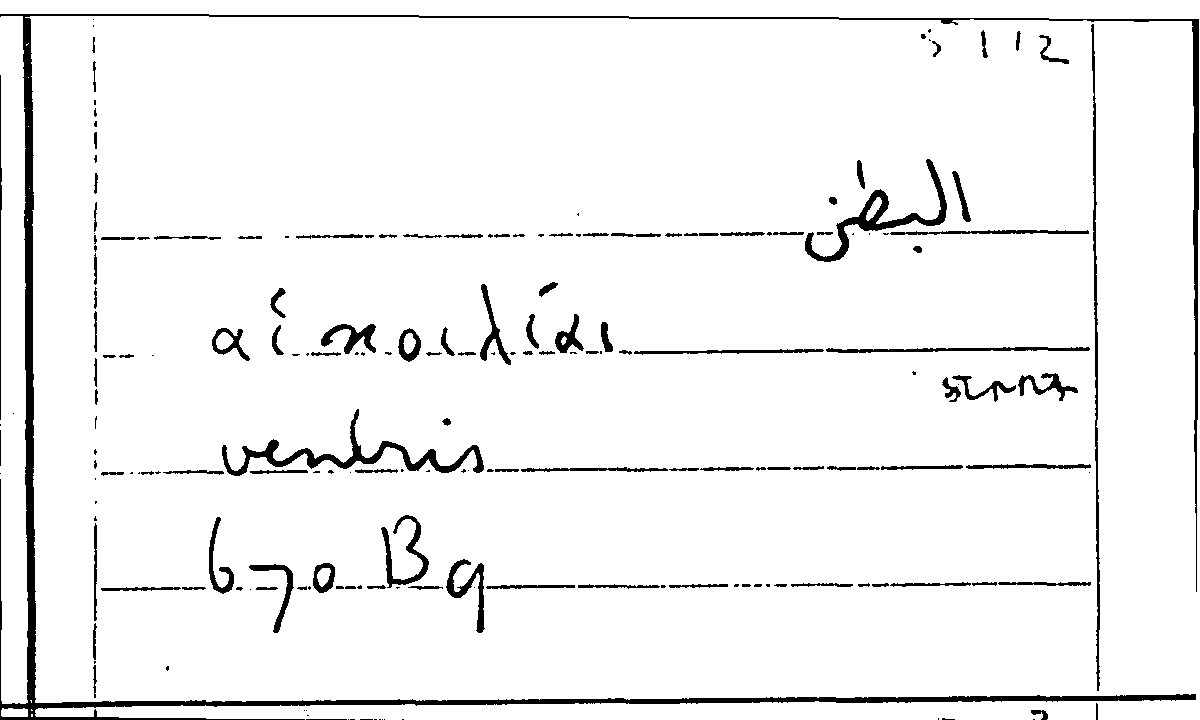 البطن
αἱ κοιλίαι
ventris
670 B9